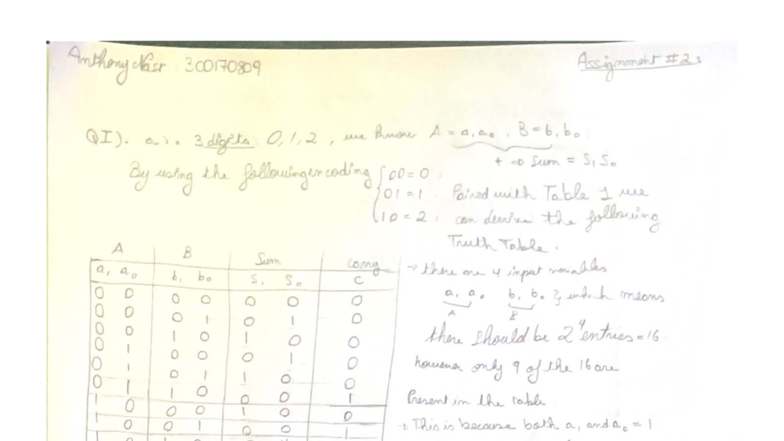 Anthony Nasr 300170809
Assignment #2:
QI). a). 3 digits: 0, 1, 2, we know A = a₁a₀, B = b₁b₀:
+ => Sum = S₁S₀
By using the following encoding { 00 = 0
01 = 1
10 = 2
Paired with Table 1 we
can derive the following
Truth Table.
A B Sum carry
a₁ a₀ b₁ b₀ S₁ S₀ C
0 0 0 0 0 0 0
0 0 0 1 0 1 0
0 0 1 0 1 0 0
0 1 0 0 0 1 0
0 1 0 1 1 0 0
0 1 1 0 0 0 1
1 0 0 0 1 0 0
1 0 0 1 0 0 1
→ there are 4 input variables
a₁ a₀ b₁ b₀ } which means
A B
there should be 2⁴ entries = 16
however only 9 of the 16 are
Present in the table
→ This is because both a₁ and a₀ = 1